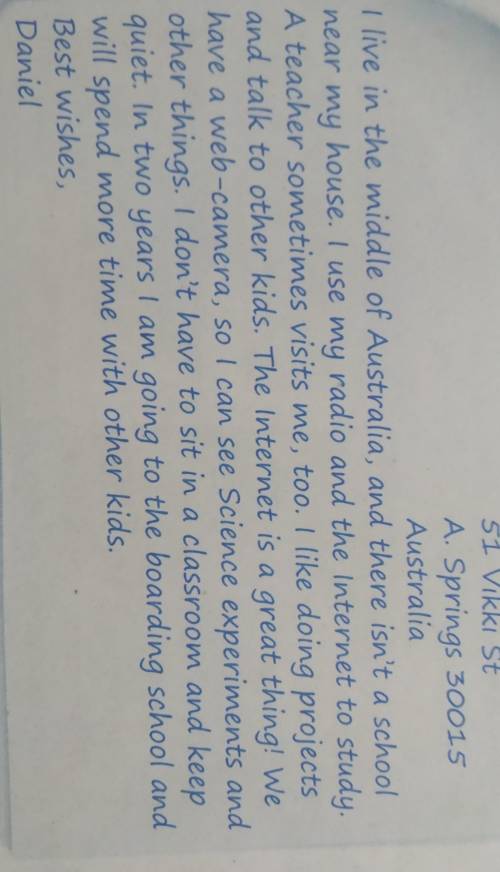 51 Vikki St
A. Springs 30015
Australia
I live in the middle of Australia, and there isn't a school
near my house. I use my radio and the Internet to study.
A teacher sometimes visits me, too. I like doing projects
and talk to other kids. The Internet is a great thing! We
have a web-camera, so I can see Science experiments and
other things. I don't have to sit in a classroom and keep
quiet. In two years I am going to the boarding school and
will spend more time with other kids.
Best wishes,
Daniel